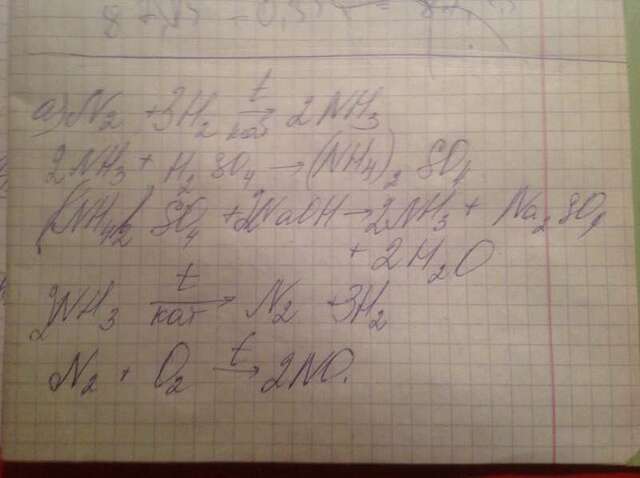 а) N2 + 3H2 t→кат 2NH3
2NH3 + H2SO4 → (NH4)2 SO4
(NH4)2 SO4 + 2NaOH → 2NH3 + Na2SO4
+ 2H2O
2NH3 t→кат N2 + 3H2
N2 + O2 t→ 2NO.